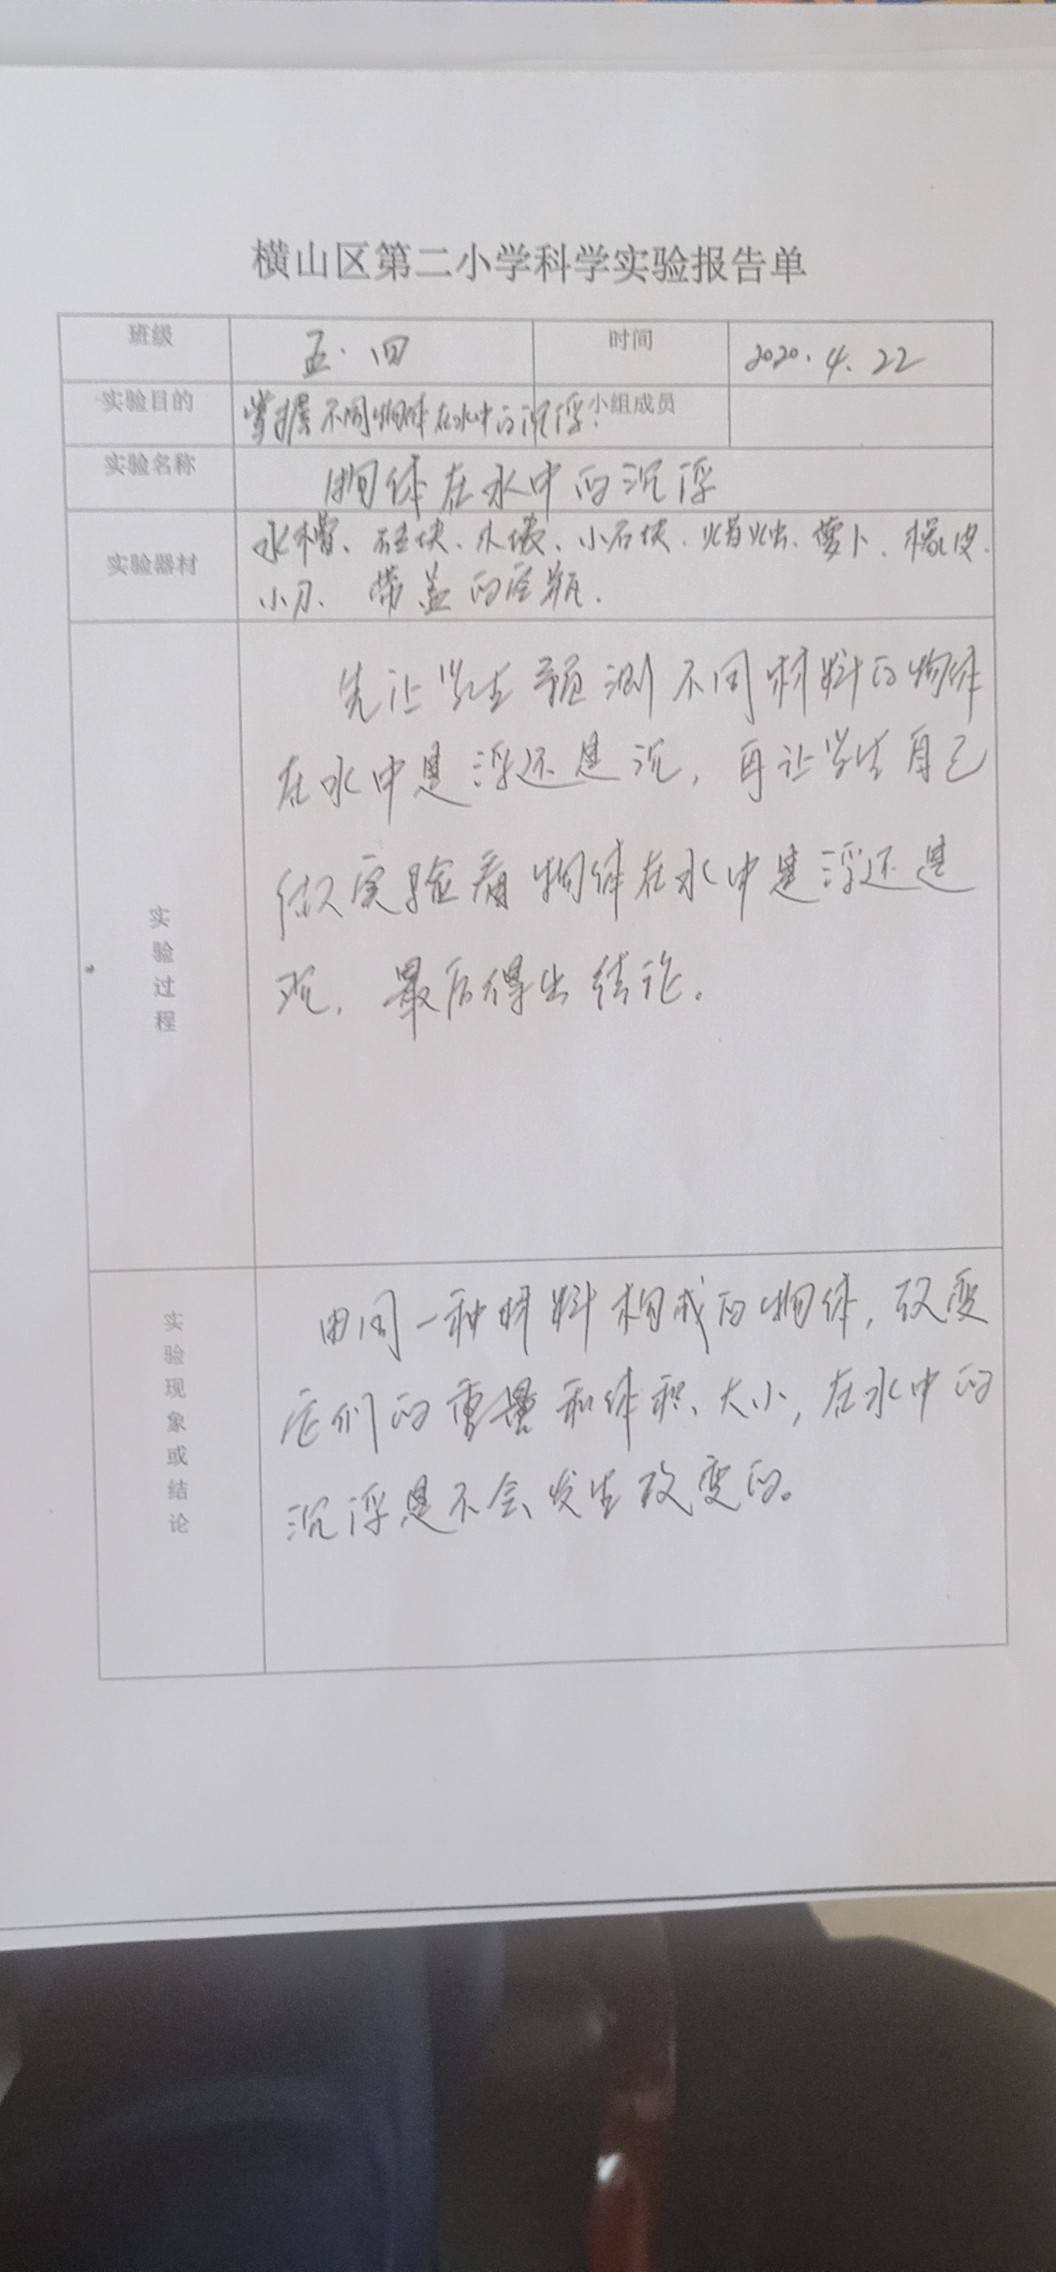 横山区第二小学科学实验报告单
班级 五·四 时间 2020.4.22
实验目的 掌握不同物体在水中的沉浮. 小组成员
实验名称 物体在水中的沉浮
实验器材 水槽、砖块、木块、小石块、蜡烛、萝卜、橡皮、
小刀、带盖的空瓶.
实验过程
先让学生预测不同材料的物体
在水中是浮还是沉,再让学生自己
做实验看物体在水中是浮还是
沉,最后得出结论.
实验现象或结论
由同一种材料构成的物体,改变
它们的重量和体积、大小,在水中的
沉浮是不会发生改变的。